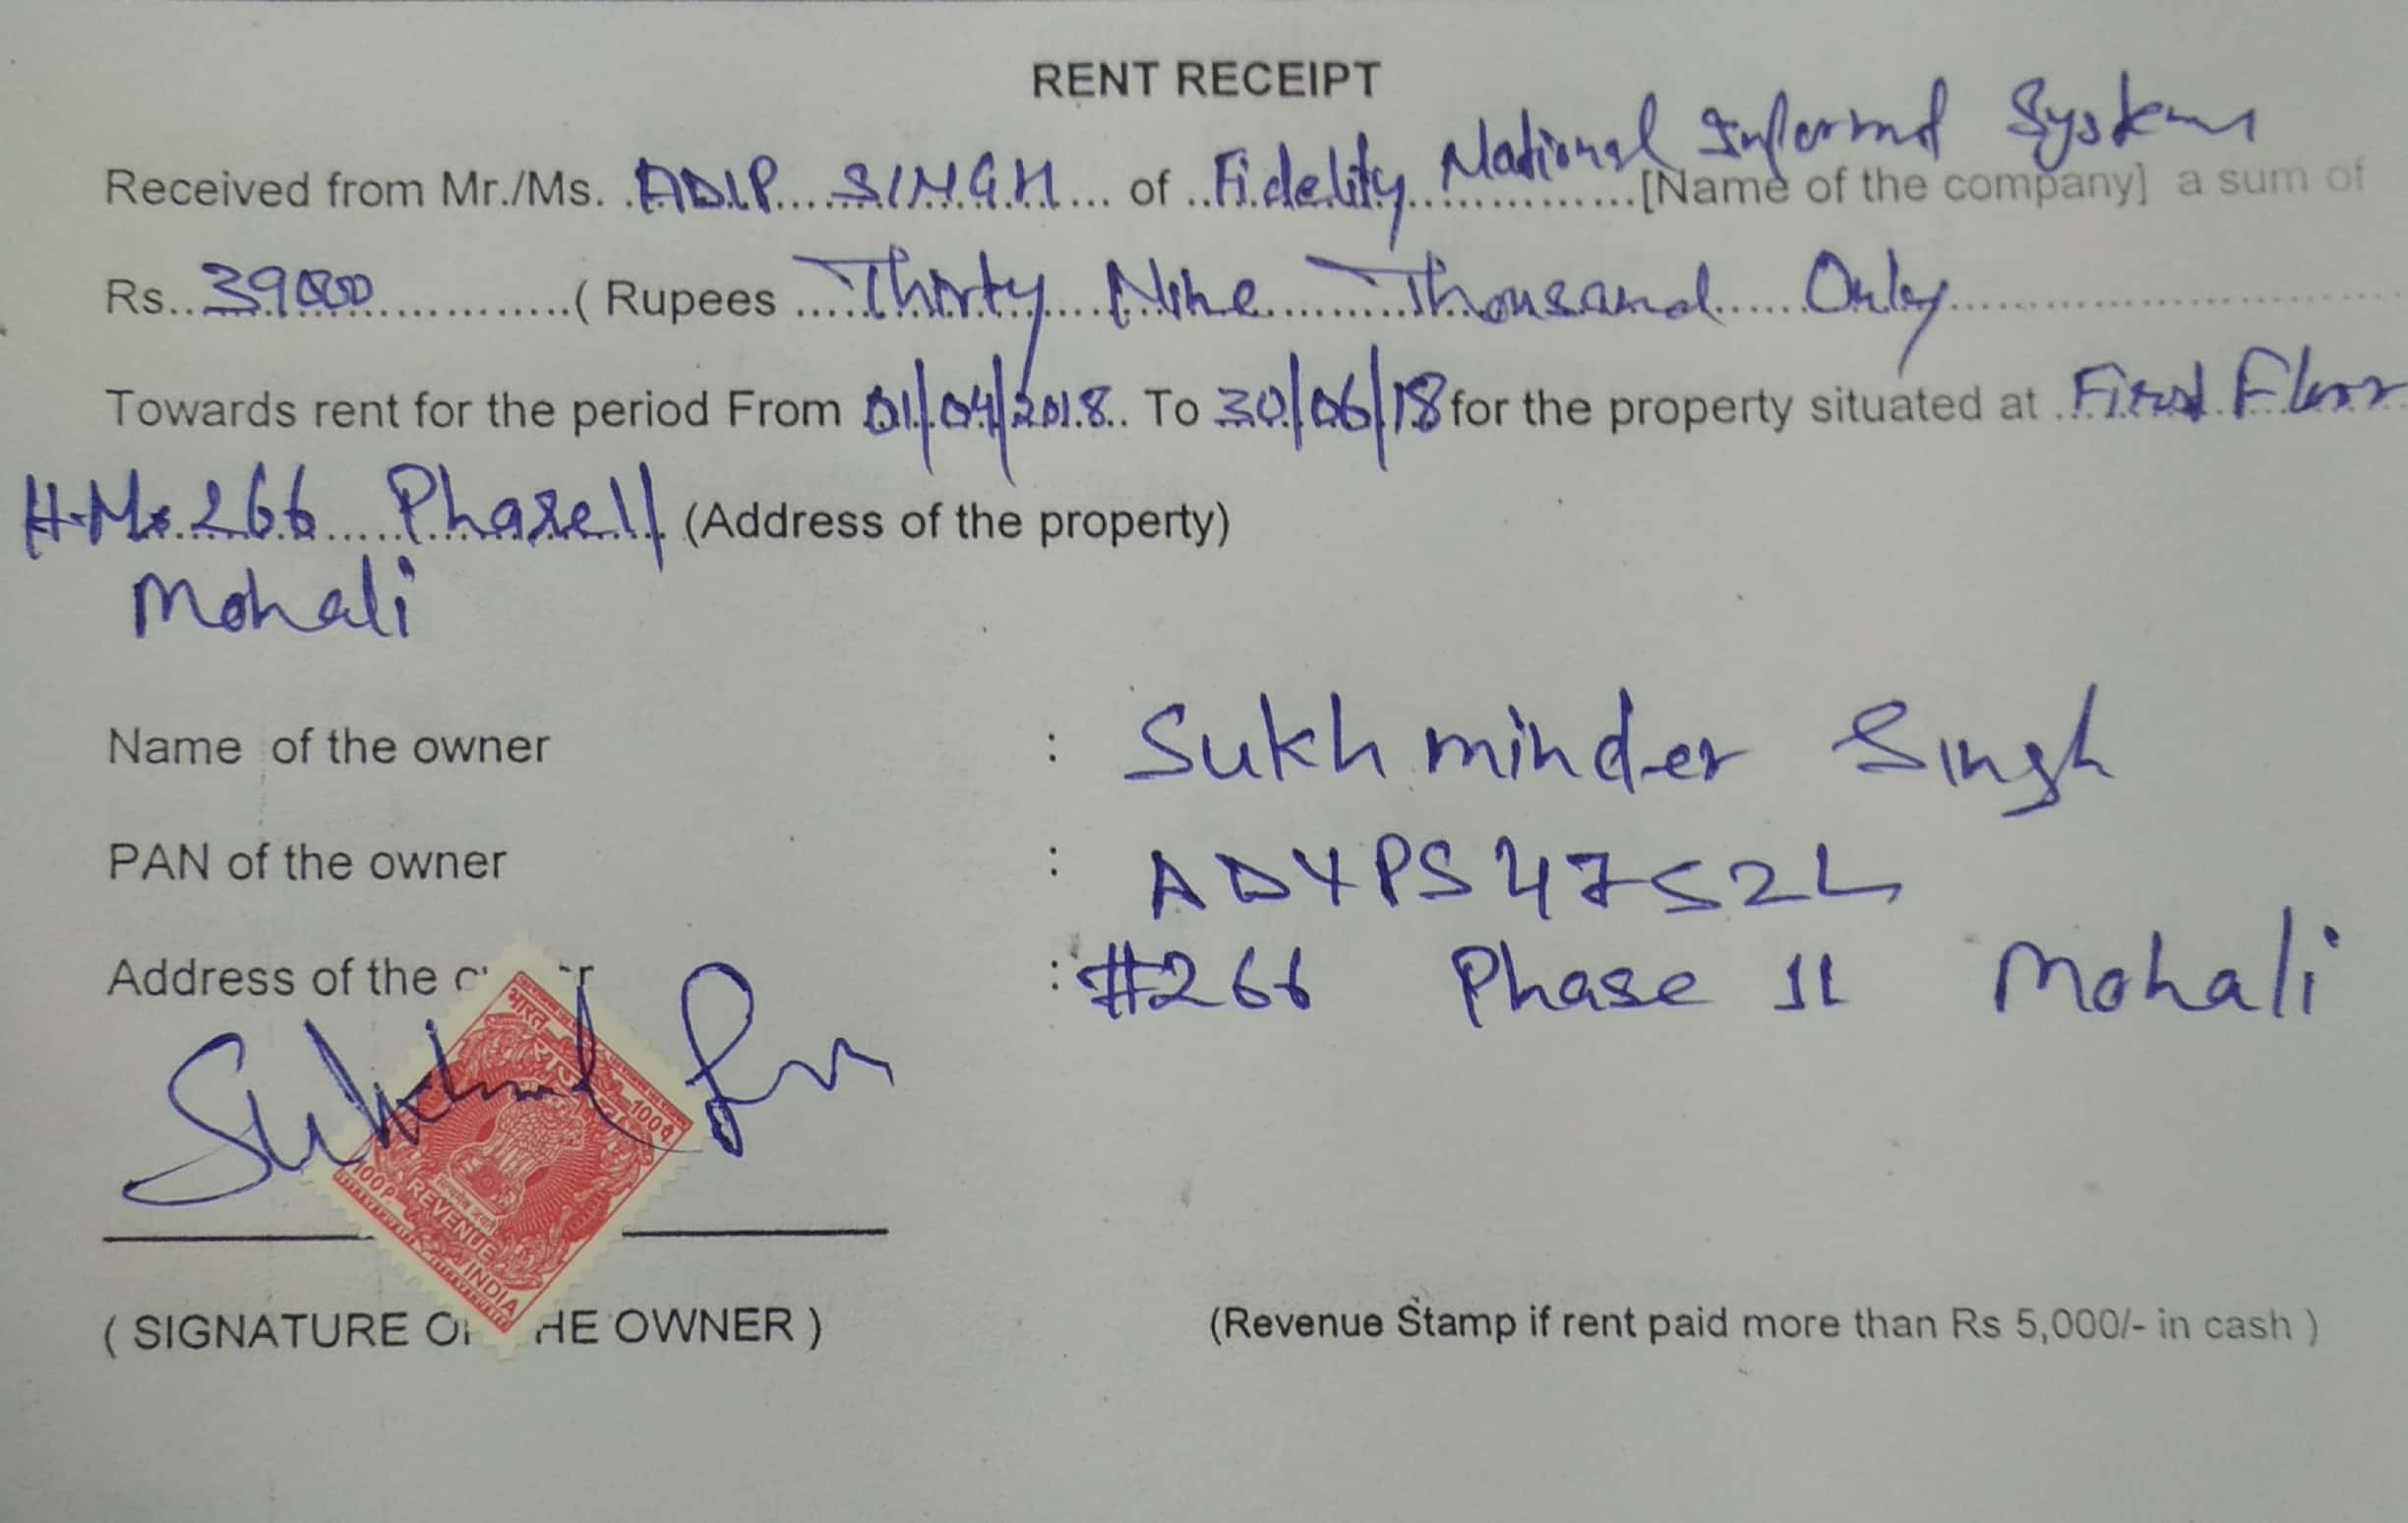 RENT RECEIPT
Received from Mr./Ms. ADIP SINGH of Fidelity National Informat Systems [Name of the company] a sum of
Rs. 39000 ( Rupees Thirty Nine Thousand Only
Towards rent for the period From 01/04/2018 To 30/06/18 for the property situated at First Floor
H.No. 266 Phase 11 (Address of the property)
Mohali
Name of the owner : Sukhminder Singh
PAN of the owner : ADYPS4752L
Address of the : #266 Phase 11 Mohali
भारत
100प
100P
REVENUE
INDIA
( SIGNATURE HE OWNER )
(Revenue Stamp if rent paid more than Rs 5,000/- in cash )